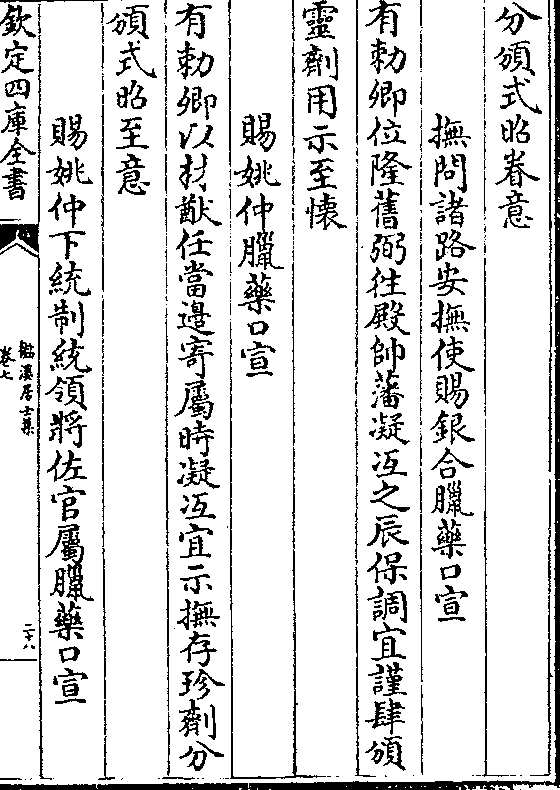 分頒式昭眷意
撫問諸路安撫使賜銀合臘藥口宣
有勅卿位隆舊弼往殿帥藩凝沍之辰保調宜謹肆頒
靈劑用示至懷
賜姚仲臘藥口宣
有勅卿以材猷任當邉寄屬時凝沍宜示撫存珍劑分
頒式昭至意
賜姚仲下統制統領將佐官屬臘藥口宣
欽定四庫全書
卷七
二十八